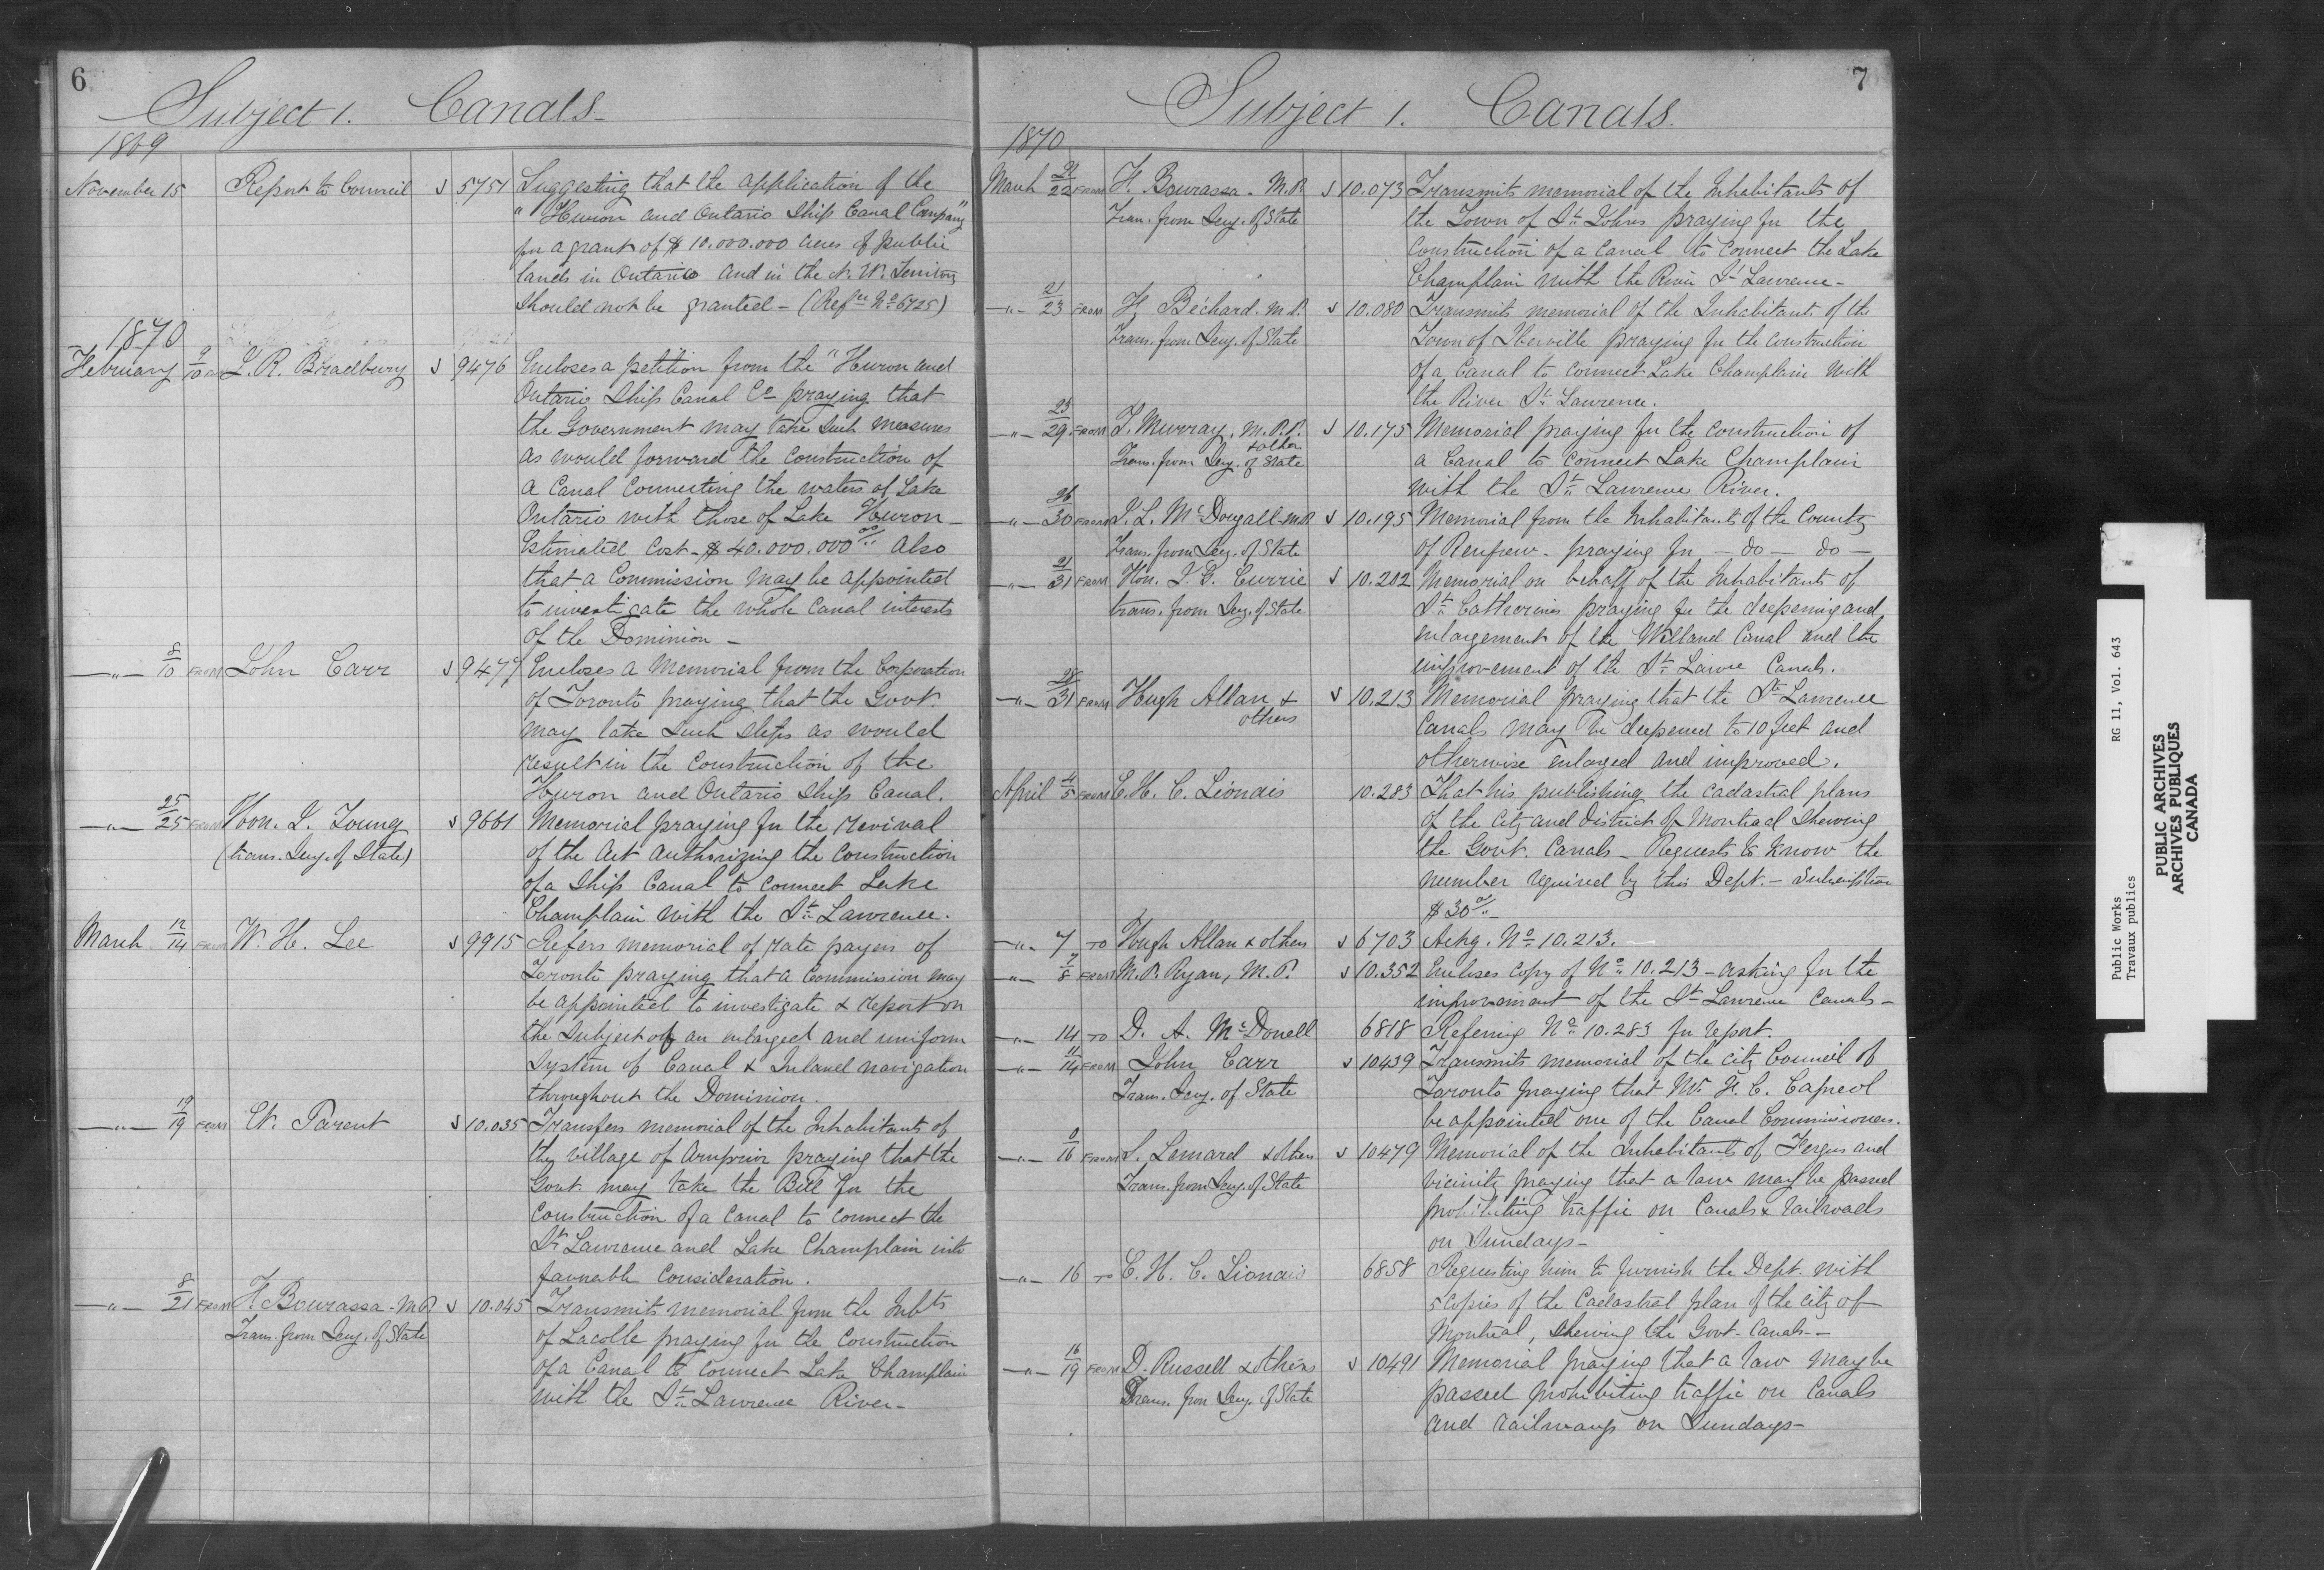 6
Subject 1. Canals
1869
November 15 Report to Council 5751 Suggesting that the application of the
"Huron and Ontario Ship Canal Company"
for a grant of $ 10.000.000 acres of public
lands in Ontario and in the N. W. Territory
should not be granted - (Refce No 6725)
1870
February 9/10 L. R. Bradbury 9476 Encloses a petition from the "Huron and
Ontario Ship Canal Co praying that
the Government may take such measures
as would forward the construction of
a Canal connecting the waters of Lake
Ontario with those of Lake Huron -
Estimated Cost - $ 40.000.000 00/ Also
that a Commission may be appointed
to investigate the whole Canal interests
of the Dominion -
-"- 8/10 FROM John Carr 9477 Encloses a Memorial from the Corporation
of Toronto praying that the Govt.
may take such steps as would
result in the construction of the
Huron and Ontario Ship Canal.
-"- 25/25 FROM Hon. J. Young 9661 Memorial praying for the revival
(trans. Secy. of State) of the Act authorizing the construction
of a Ship Canal to connect Lake
Champlain with the St. Lawrence.
March 12/14 FROM W. H. Lee 9915 Refers memorial of rate payers of
Toronto praying that a Commission may
be appointed to investigate & report on
the subject of an enlarged and uniform
system of Canal & Inland navigation
throughout the Dominion.
-"- 19/19 FROM E. Parent 10.035 Transfers memorial of the Inhabitants of
the village of Arnprior praying that the
Govt. may take the Bill for the
construction of a Canal to connect the
St Lawrence and Lake Champlain into
favorable consideration.
-"- 8/21 FROM F. Bourassa - M.P. 10.045 Transmits memorial from the Inhbts
Trans. from Secy. of State of Lacolle praying for the construction
of a Canal to connect Lake Champlain
with the St. Lawrence River -
7
Subject 1. Canals.
1870
March 21/22 FROM F. Bourassa - M.P. 10.073 Transmits memorial of the Inhabitants of
Tran. from Secy. of State the Town of St. Johns praying for the
construction of a Canal to connect the Lake
Champlain with the River St Lawrence -
-"- 21/23 FROM F. Béchard. M.P. 10.080 Transmits memorial of the Inhabitants of the
Trans. from Secy. of State Town of Iberville praying for the construction
of a Canal to connect Lake Champlain with
the River St. Lawrence.
-"- 29 FROM T. Murray, M.P.P. 10.175 Memorial praying for the construction of
& other
Trans. from Secy. of State a Canal to connect Lake Champlain
with the St. Lawrence River.
-"- 26/30 FROM J. L. McDougall M.P. 10.195 Memorial from the Inhabitants of the County
Trans. from Secy. of State of Renfrew - praying for - do - do -
-"- 21/31 FROM Hon. J. G. Currie 10.202 Memorial on behalf of the Inhabitants of
trans. from Secy. of State St. Catherines praying for the deepening and
enlargement of the Welland Canal and the
improvement of the St. Lawce Canals.
-"- 28/31 FROM Hugh Allan & 10.213 Memorial praying that the St. Lawrence
others Canals may be deepened to 10 feet and
otherwise enlarged and improved.
April 4/5 FROM E. H. C. Lionais 10.283 That his publishing the cadastral plans
of the City and District of Montreal shewing
the Govt. Canals - Requests to know the
number required by this Dept. - Subscription
$ 30 00/
-"- 7 TO Hugh Allan & others 6703 Ackg. No. 10.213.
-"- 7/8 FROM M. P. Ryan, M.P. 10.352 Encloses copy of No. 10.213 - asking for the
improvement of the St Lawrence Canals -
-"- 14 TO D. A. McDonell 6818 Refering No. 10.283 for report.
-"- 11/14 FROM John Carr 10439 Transmits memorial of the City Council of
Trans. Secy. of State Toronto praying that Mr F. C. Capreol
be appointed one of the Canal Commissioners.
-"- 16 FROM Lemard & others 10479 Memorial of the Inhabitants of Fergus and
Trans. from Secy. of State vicinity praying that a law may be passed
prohibiting traffic on Canals & railroads
on Sundays -
-"- 16 TO E. H. C. Lionais 6858 Requesting him to furnish the Dept. with
5 Copies of the Cadastral plan of the City of
Montreal, shewing the Govt. Canals -
-"- 16/19 FROM D. Russell & others 10491 Memorial praying that a law may be
Trans. from Secy. of State passed prohibiting traffic on Canals
and railways on Sundays -
Public Works RG 11, Vol. 643
Travaux publics
PUBLIC ARCHIVES
ARCHIVES PUBLIQUES
CANADA